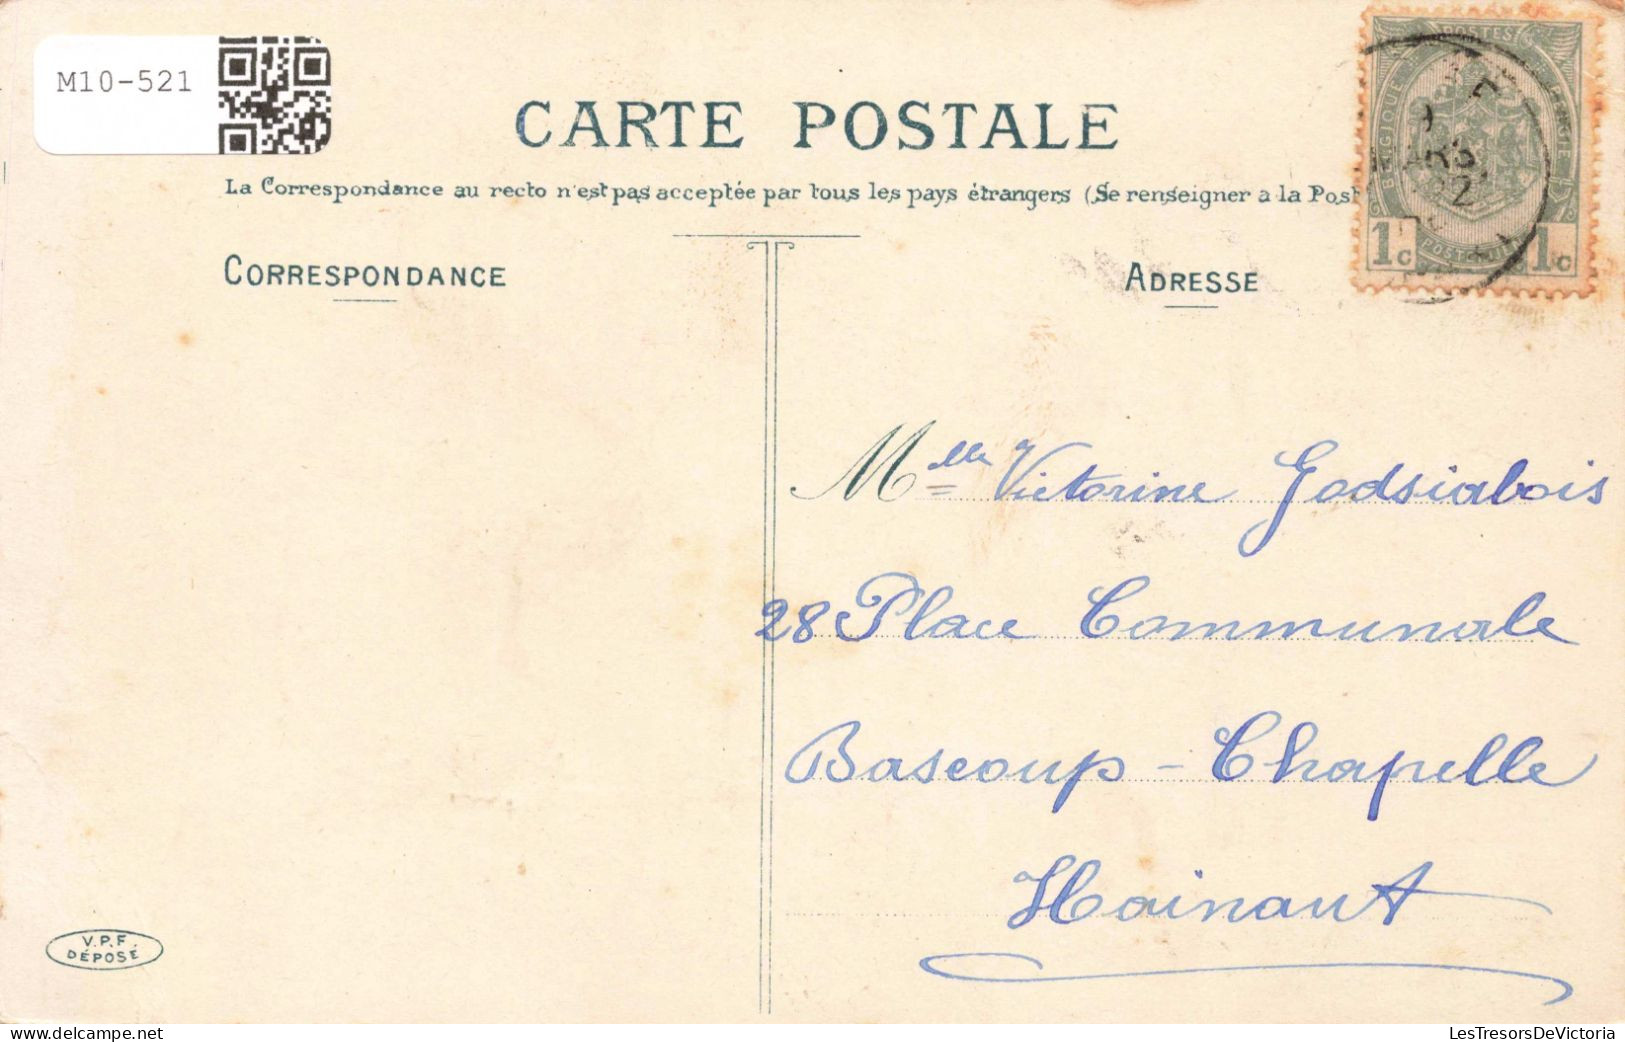 M10-521
CARTE POSTALE
La Correspondance au recto n'est pas acceptée par tous les pays étrangers (Se renseigner a la Post
CORRESPONDANCE
ADRESSE
BELGIQUE
POSTES
1c 1c
Mlle Victorine Godsiabois
28 Place Communale
Bascoup - Chapelle
Hainaut
V.P.F.
DÉPOSÉ
www.delcampe.net
LesTresorsDeVictoria